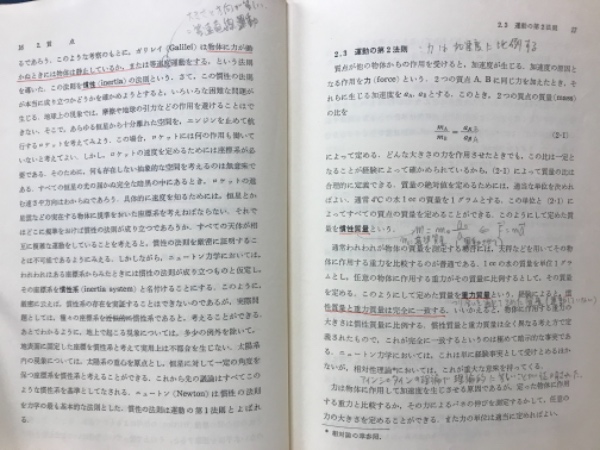 16　2 質 点
るであろう，このような考察のもとに，ガリレイ(Galilei)は物体に力が働
かぬときには物体は静止しているか，または等速度運動をする，という法則
を導いた．この法則を慣性(inertia)の法則という．さて，この慣性の法則
が本当に成り立つかどうかを確かめようとすると，いろいろな困難な問題が
生じる．地上での現象では，摩擦や地球の引力などの作用を避けることはで
きない．そこで，あらゆる恒星から十分離れた空間を，エンジンを止めて航
行するロケットを考えてみよう．この場合，ロケットには何の作用も働いて
いないと考えてよい．しかし，ロケットの速度を定めるためには座標系が必
要である．そのために，何も存在しない抽象的な空間を考えるのは無意味で
ある．すべての恒星の光の届かぬ完全な暗黒の中にあるとき，ロケットの進
む速さや方向はわからぬであろう．具体的に速度を知るためには，恒星とか
星雲などの現在する物体に基準をおいた座標系を考えねばならない．それで
はどこに規準をおけば慣性の法則が成り立つであろうか．すべての天体が相
互に複雑な運動をしていることを考えると，慣性の法則を厳密に証明するこ
とは不可能であるようにみえる．しかしながら，ニュートン力学においては，
われわれはある座標系からみたときには慣性の法則が成り立つものと仮定し，
その座標系を慣性系(inertia system)と名付けることにする．このように，
厳密に言えば，慣性系の存在を実証することはできないのであるが，実際問
題としては，種々の座標系を慣性系であると，考えることができる．
あとでわかるように，地上で起こる現象については，多少の例外を除いて，
地表面に固定した座標を慣性系と考えて実用上は不都合を生じない．太陽系
内の現象については，太陽系の重心を原点とし，恒星に対して一定の角度を
保つ座標系を慣性系と考えることができる．これから先の議論はすべてこの
ような慣性系を基準としてなされる．ニュートン(Newton)は慣性の法則
を力学の最も基本的な法則とした．慣性の法則は運動の第1法則とよばれ
る．
2.3　運動の第2法則　17
2.3　運動の第2法則
力は加速度に比例する
質点が他の物体からの作用を受けると，加速度が生じる．加速度の原因と
なる作用を力(force)という．2つの質点 A, B に同じ力を加えたとき，そ
れらに生じる加速度を aA, aB とする．このとき，2つの質点の質量(mass)
の比を
mA/mB = aB/aA　(2-1)
によって定める．どんな大きさの力を作用させたときでも，この比は一定と
なることが経験によって確かめられているから，(2-1)によって質量の比は
合理的に定義できる．質量の絶対値を定めるためには，適当な単位を決めれ
ばよい．通常 4℃ の水 1 cc の質量を 1 グラムとする．この単位と (2-1) に
よってすべての質点の質量を定めることができる．このようにして定めた質
量を慣性質量という．
通常われわれが物体の質量を測定する場合には，天秤などを用いてその物
体に作用する重力を比較するのが普通である．1 cc の水の質量を前述 1 グラ
ムとし，任意の物体に作用する重力がその質量に比例するとして，その質量
を定める．このようにして定めた質量を重力質量という．経験によると，慣
性質量と重力質量は完全に一致する．いいかえると，物体に作用する重力の
大きさは慣性質量に比例する．慣性質量と重力質量は全く異なる考え方で定
義されたもので，これが完全に一致するというのは極めて暗示的な事実であ
る．ニュートン力学においては，これは単に経験事実として受けとめるほか
ないが，相対性理論*においては，これが重大な意味を持ってくる．
力は物体に作用して加速度を生じさせる原因であるが，定った物体に作用
する重力と比較するか，その力によるバネの伸びを測定するかして，任意の
力の大きさを定めることができる．また力の単位は適当に定めればよい．
* 相対論の章参照．